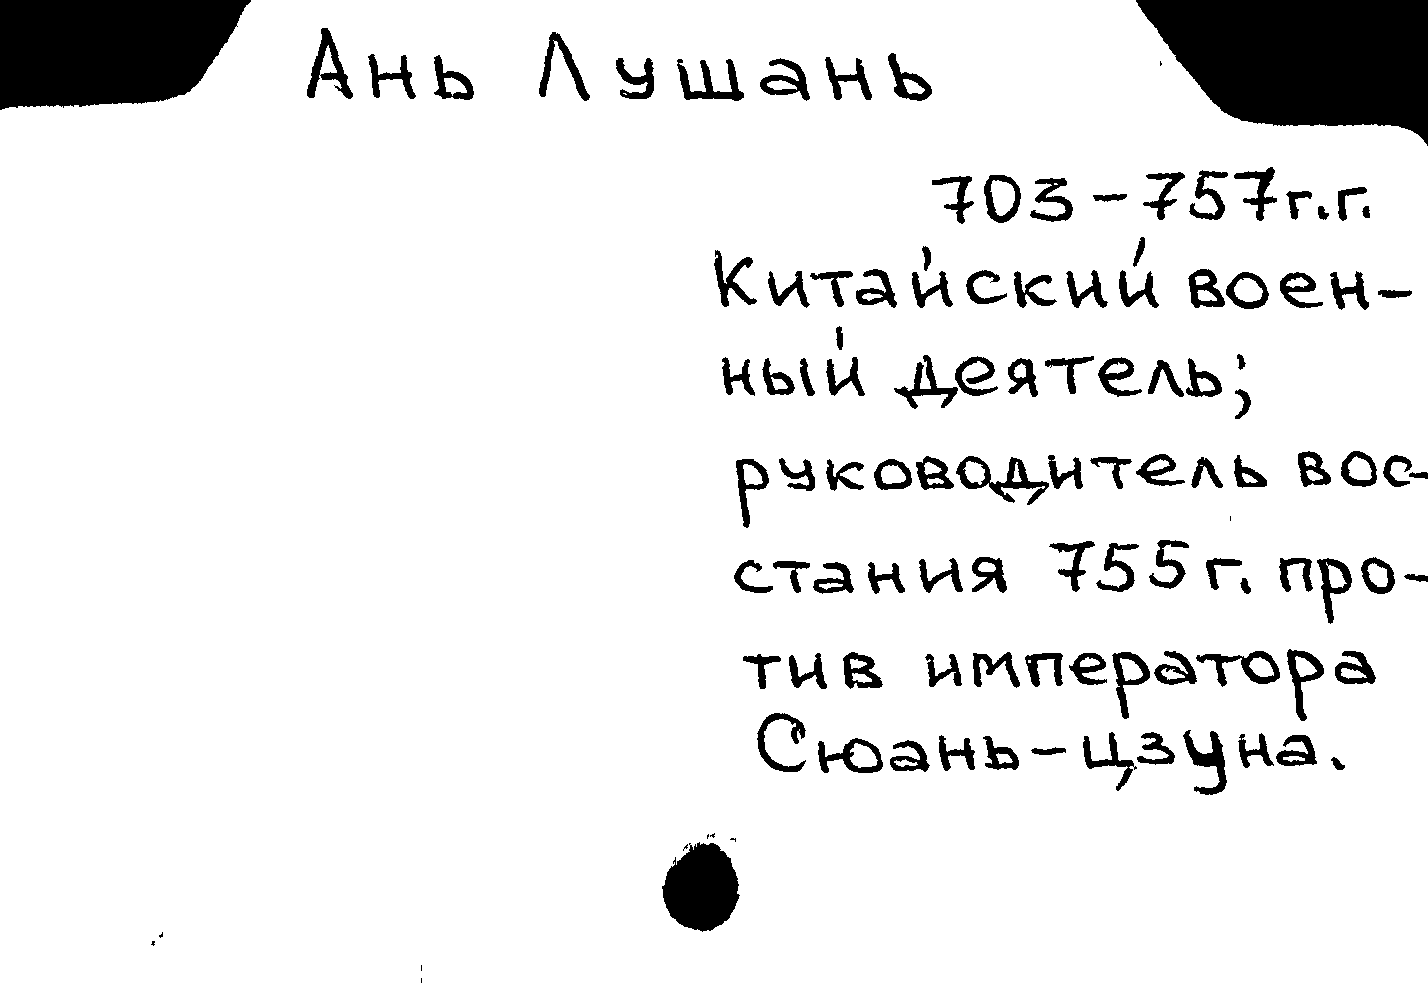 Ань Лушань
703-757г.г.
Китайский воен-
ный деятель;
руководитель вос-
стания 755г. про-
тив императора
Сюань-цзуна.